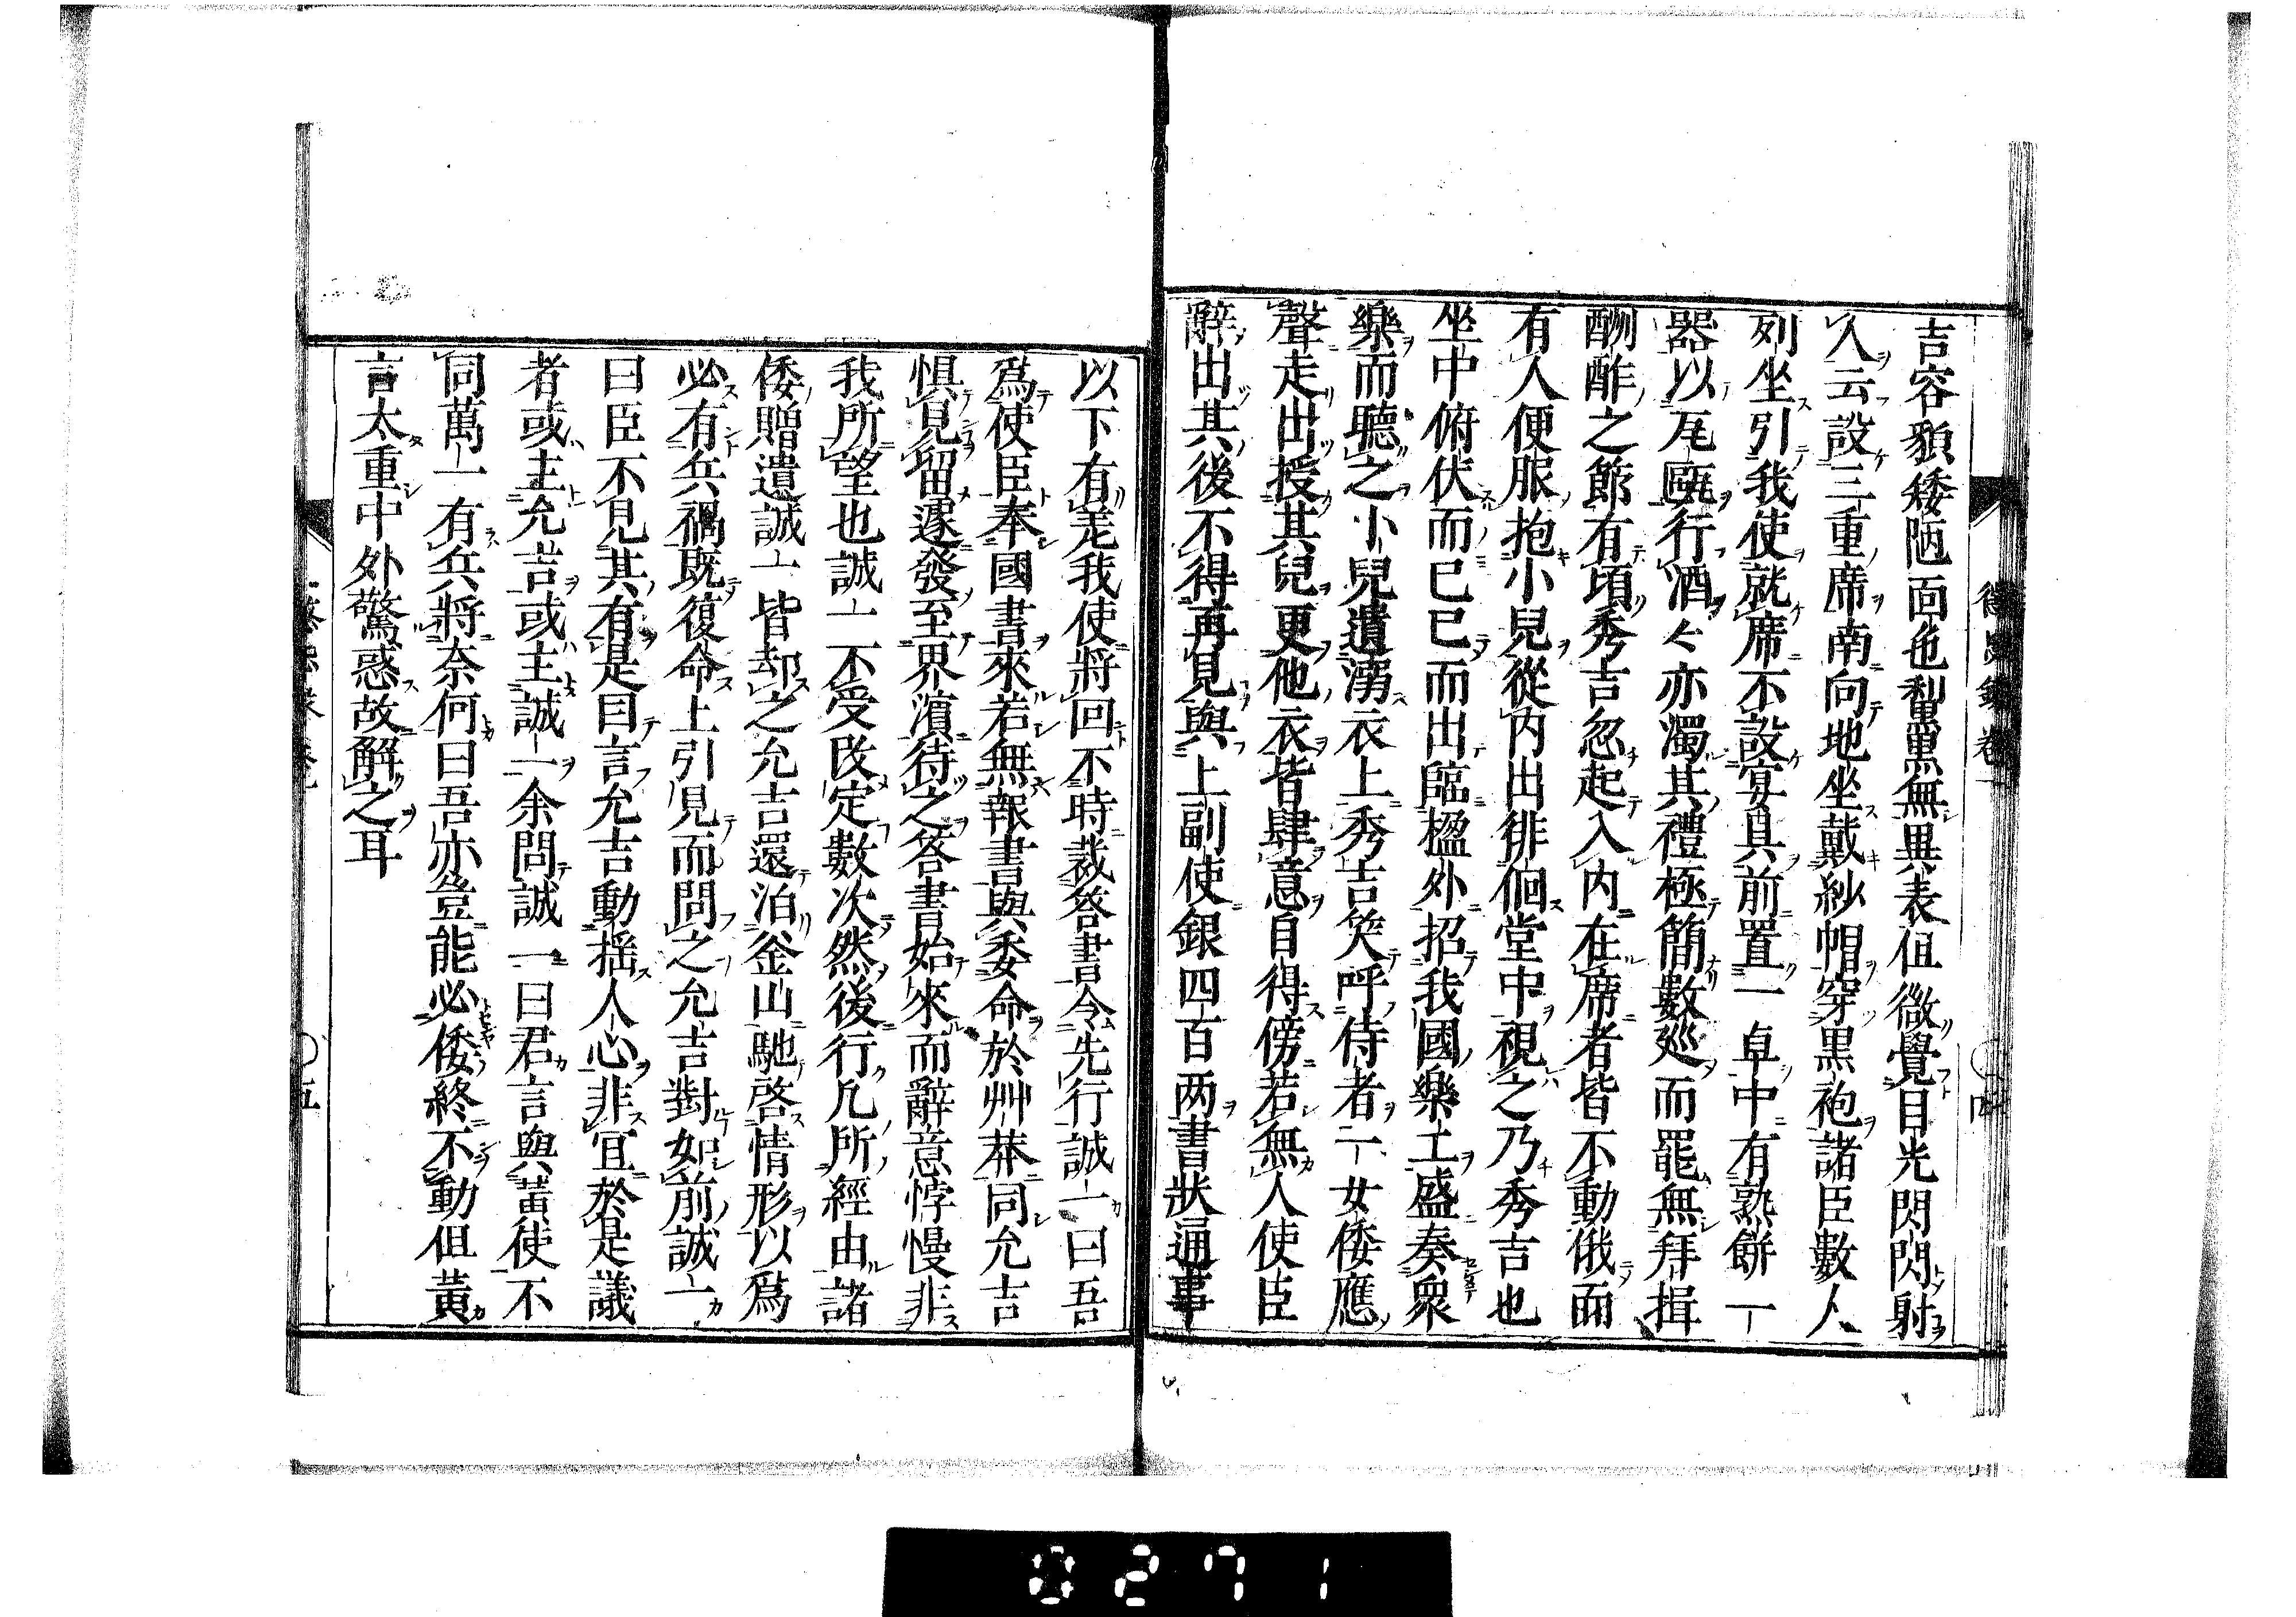 吉容貌矮陋面色黧黒無異表但微覺目光閃閃射
人云設三重席南向地坐戴紗帽穿黒袍諸臣數人
列坐引我使就席不設宴具前置一卓中有熟餅一
器以瓦甌行酒々亦濁其禮極簡數廵而罷無拜揖
酬酢之節有頃秀吉忽起入内在席者皆不動俄而
有人便服抱小兒從内出徘徊堂中視之乃秀吉也
坐中俯伏而已已而出臨楹外招我國樂工盛奏衆
樂而聽之小兒遺溺衣上秀吉笑呼侍者一女倭應
聲走出授其兒更他衣皆肆意自得傍若無人使臣
辭出其後不得再見與上副使銀四百两書狀通事
以下有差我使將回不時裁答書令先行誠一曰吾
爲使臣奉國書來若無報書與委命於艸莽同允吉
懼見留遽發至界濵待之答書始來而辭意悖慢非
我所望也誠一不受改定數次然後行凡所經由諸
倭贈遺誠一皆却之允吉還泊釜山馳啓情形以爲
必有兵禍既復命上引見而問之允吉對如前誠一
曰臣不見其有是曰言允吉動揺人心非宜於是議
者或主允吉或主誠一余問誠一曰君言與黃使不
同萬一有兵將奈何曰吾亦豈能必倭終不動但黃
言太重中外驚惑故解之耳
懲毖録卷一
五
0271